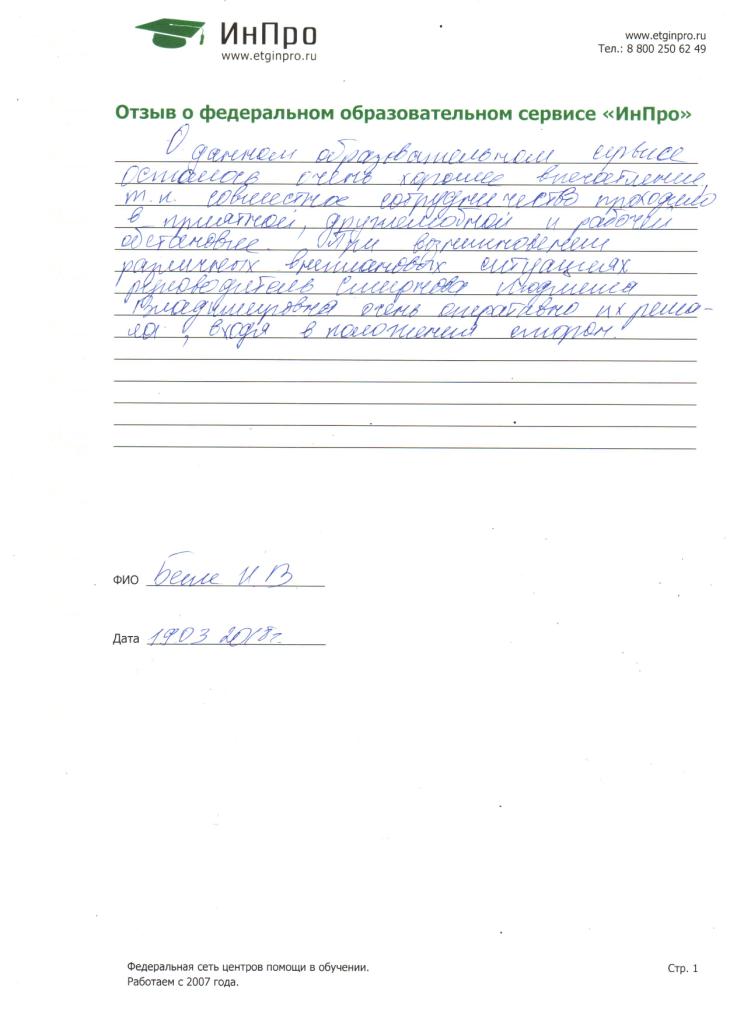 ИнПро
www.etginpro.ru
www.etginpro.ru
Тел.: 8 800 250 62 49
Отзыв о федеральном образовательном сервисе «ИнПро»
О данном образовательном сервисе
осталось очень хорошее впечатление,
т.к. совместное сотрудничество проходило
в приятной, дружелюбной и рабочей
обстановке. При возникновении
различных внеплановых ситуациях
руководитель Смирнова Людмила
Владимировна очень оперативно их реша-
ла, входя в положения сторон.
ФИО И В
Дата 19 03 2018г.
Федеральная сеть центров помощи в обучении.
Работаем с 2007 года.
Стр. 1